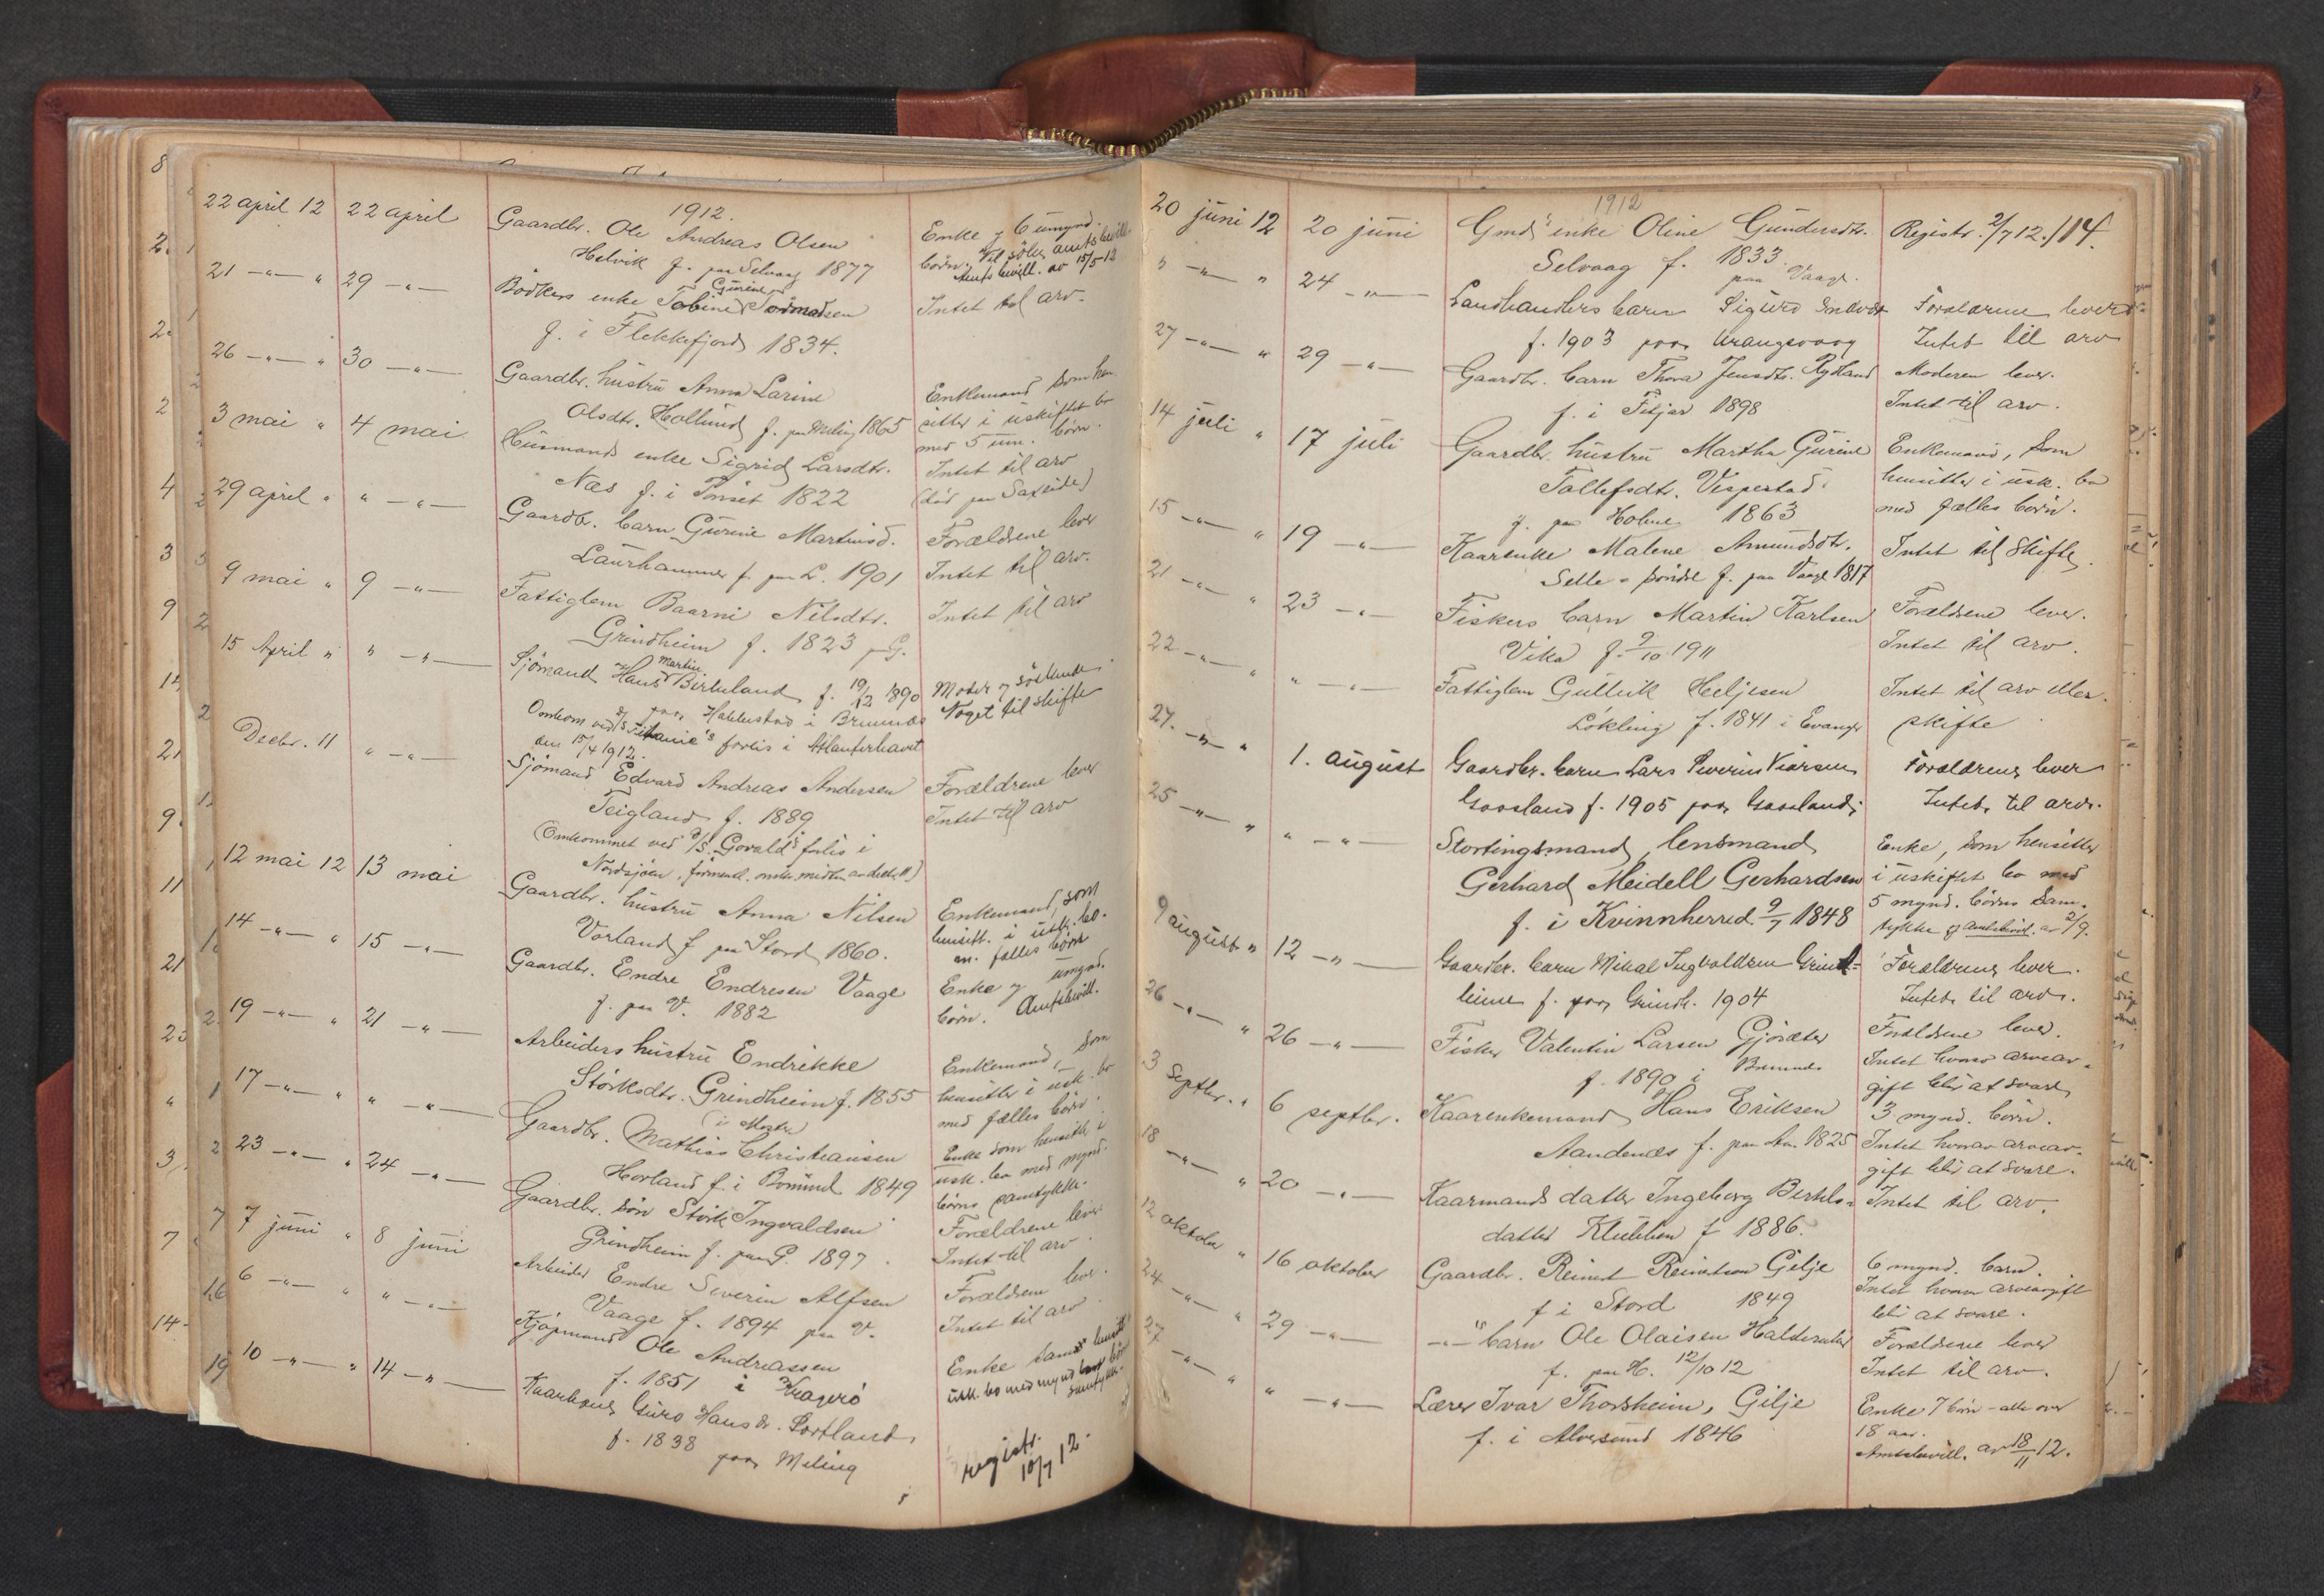 1912.
22 april 12 22 april Gaardbr. Ole Andreas Olsen Enke og 6 umynd.
Helvik f. paa Selvaag 1877 börn. Vil söke amtsbevill.
Amtsbevill. av 15/5 12
21 -"- " 29 -"- Bödkers enke Tobine Gurine Tormodsen Intet til arv.
f. i Flekkefjord 1834.
26 -"- " 30 -"- Gaardbr. hustru Anna Larine Enkemand som hen
Olsdtr. Hollund f. paa Meling 1865 sitter i uskiftet bo
med 5 um. börn.
3 mai " 4 mai Husmands enke Sigrid Larsdtr. Intet til arv
Næs f. i 1822 (död paa Sakseide)
29 april " " -"- Gaardbr. barn Gurine Martinsd. Forældrene lever
Laurhammer f. paa L. 1901 Intet til arv.
9 mai " 9 -"- Fattiglem Baarni Nilsdtr. Intet til arv
Grindheim f. 1823 p. G.
15 April " " -"- Sjömand Hans Martin Birkeland f. 19/12 1890 Moder og söskende
paa Hallestad i Bremnes Noget til skifte
Omkom ved D/S "Titanic"s forlis i Atlanterhavet
den 15/4 1912.
Decbr. 11 " -"- Sjömand Edvard Andreas Andersen Forældrene lever
Teigland f. 1889 Intet til arv
(Omkommet ved D/S "Gorald"s forlis i
Nordsjöen, förmentl. omkr. midten av decbr. 11)
12 mai 12 13 mai Gaardbr. hustru Anna Nilsen Enkemand, som
Vorland f. paa Stord 1860. hensitt. i usk. bo.
m. fælles börn
14 -"- " 15 -"- Gaardbr. Endre Endresen Vaage Enke og umynd.
f. paa V. 1882 börn. Amtsbevill.
19 -"- " 21 -"- Arbeiders hustru Endrikke Enkemand, som
Störksdtr. Grindheim f. 1855 hensitter i usk. bo
(i Moster) med fælles börn.
17 -"- " " -"- Gaardbr. Mathias Christiansen Enke som hensitter i
Horland f. i Bömmel 1849 usk. bo med mynd.
börns samtykke.
23 -"- " 24 -"- Gaardbr. sön Störk Ingvaldsen Forældrene lever.
Grindheim f. paa G. 1897. Intet til arv.
7 juni " 8 juni Arbeider Endre Severin Alfsen Forældrene lever.
Vaage f. 1894 paa V. Intet til arv
6 -"- " " -"- Kjöpmand Ole Andreassen Enke hensitt.
f. 1851 i Kragerö usk. bo med mynd börn
samtykke.
10 -"- " 14 -"- Kaarkone Guro Hansdr. Sortland registr.
f. 1838 paa Meling 10/7 12.
1912
20 juni 12 20 juni Gmds enke Oline Gundersdtr. Registr. 2/7 12./14.
Selvaag f. 1833 paa Vaage.
" -"- " 24 -"- Landhandlers barn Sigurd Forældrene lever
f. 1903 paa Urangsvaag Intet til arv
27 -"- " 29 -"- Gaardbr. barn Thora Jensdtr. Rydland Moderen lever.
f. i Fitjar 1898 Intet til arv.
14 juli " 17 juli Gaardbr. hustru Martha Gurine Enkemand, som
Tollefsdtr. Vespestad hensitter i usk. bo
f. paa Holme 1863 med fælles börn.
15 -"- " 19 -"- Kaarenke Malene Amundsdtr. Intet til skifte.
Sille-söndre f. paa Vaage 1817
21 -"- " 23 -"- Fiskers barn Martin Karlsen Forældrene lever.
Vika f. 9/10 1911 Intet til arv.
22 -"- " " -"- Fattiglem Gullik Heljesen Intet til arv eller
Lökling f. 1841 i Evanger skifte
27. -"- " 1. august Gaardbr. barn Lars Severin Forældrene lever
Gaasland f. 1905 paa Gaasland Intet til arv.
25 -"- " " -"- Stortingsmand, lensmand Enke, som hensitter
Gerhard Meidell Gerhardsen i uskiftet bo med
f. i Kvinnherred 9/7 1848 5 mynd. börns sam-
tykke og amtsbevil. av 2/9.
9 august " 12 -"- Gaardbr. barn Mikal Ingvaldsen Grind- Forældrene lever.
heim f. paa Grindh. 1904 Intet til arv.
26 -"- " 26 -"- Fisker Valentin Larsen Gjöræter Forældrene lever.
f. 1890 i Bremnes Intet hvorav arveav-
gift blir at svare
3 Septbr. " 6 septbr. Kaarenkemand Hans Eriksen 3 mynd. börn.
Aandenæs f. paa Aa. 1825 Intet hvorav arveav-
gift blir at svare.
18 -"- " 20 -"- Kaarmands datter Ingeborg Bertels- Intet til arv.
datter Klubben f 1886.
12 oktober " 16 oktober Gaardbr. Reinert Reinertsen Gilje 6 mynd. barn
f i Stord 1849 Intet hvorav arveavgift
blir at svare.
24 -"- " 29 -"- -"- barn Ole Olaisen Haldoraker Forældrene lever
f. paa H. 12/10 12 Intet til arv.
27 -"- " " -"- Lærer Ivar Thorsheim, Gilje Enke 7 börn - alle over
f. i Alversund 1846 18 aar.
Amtsbevill. av 18/11 12.